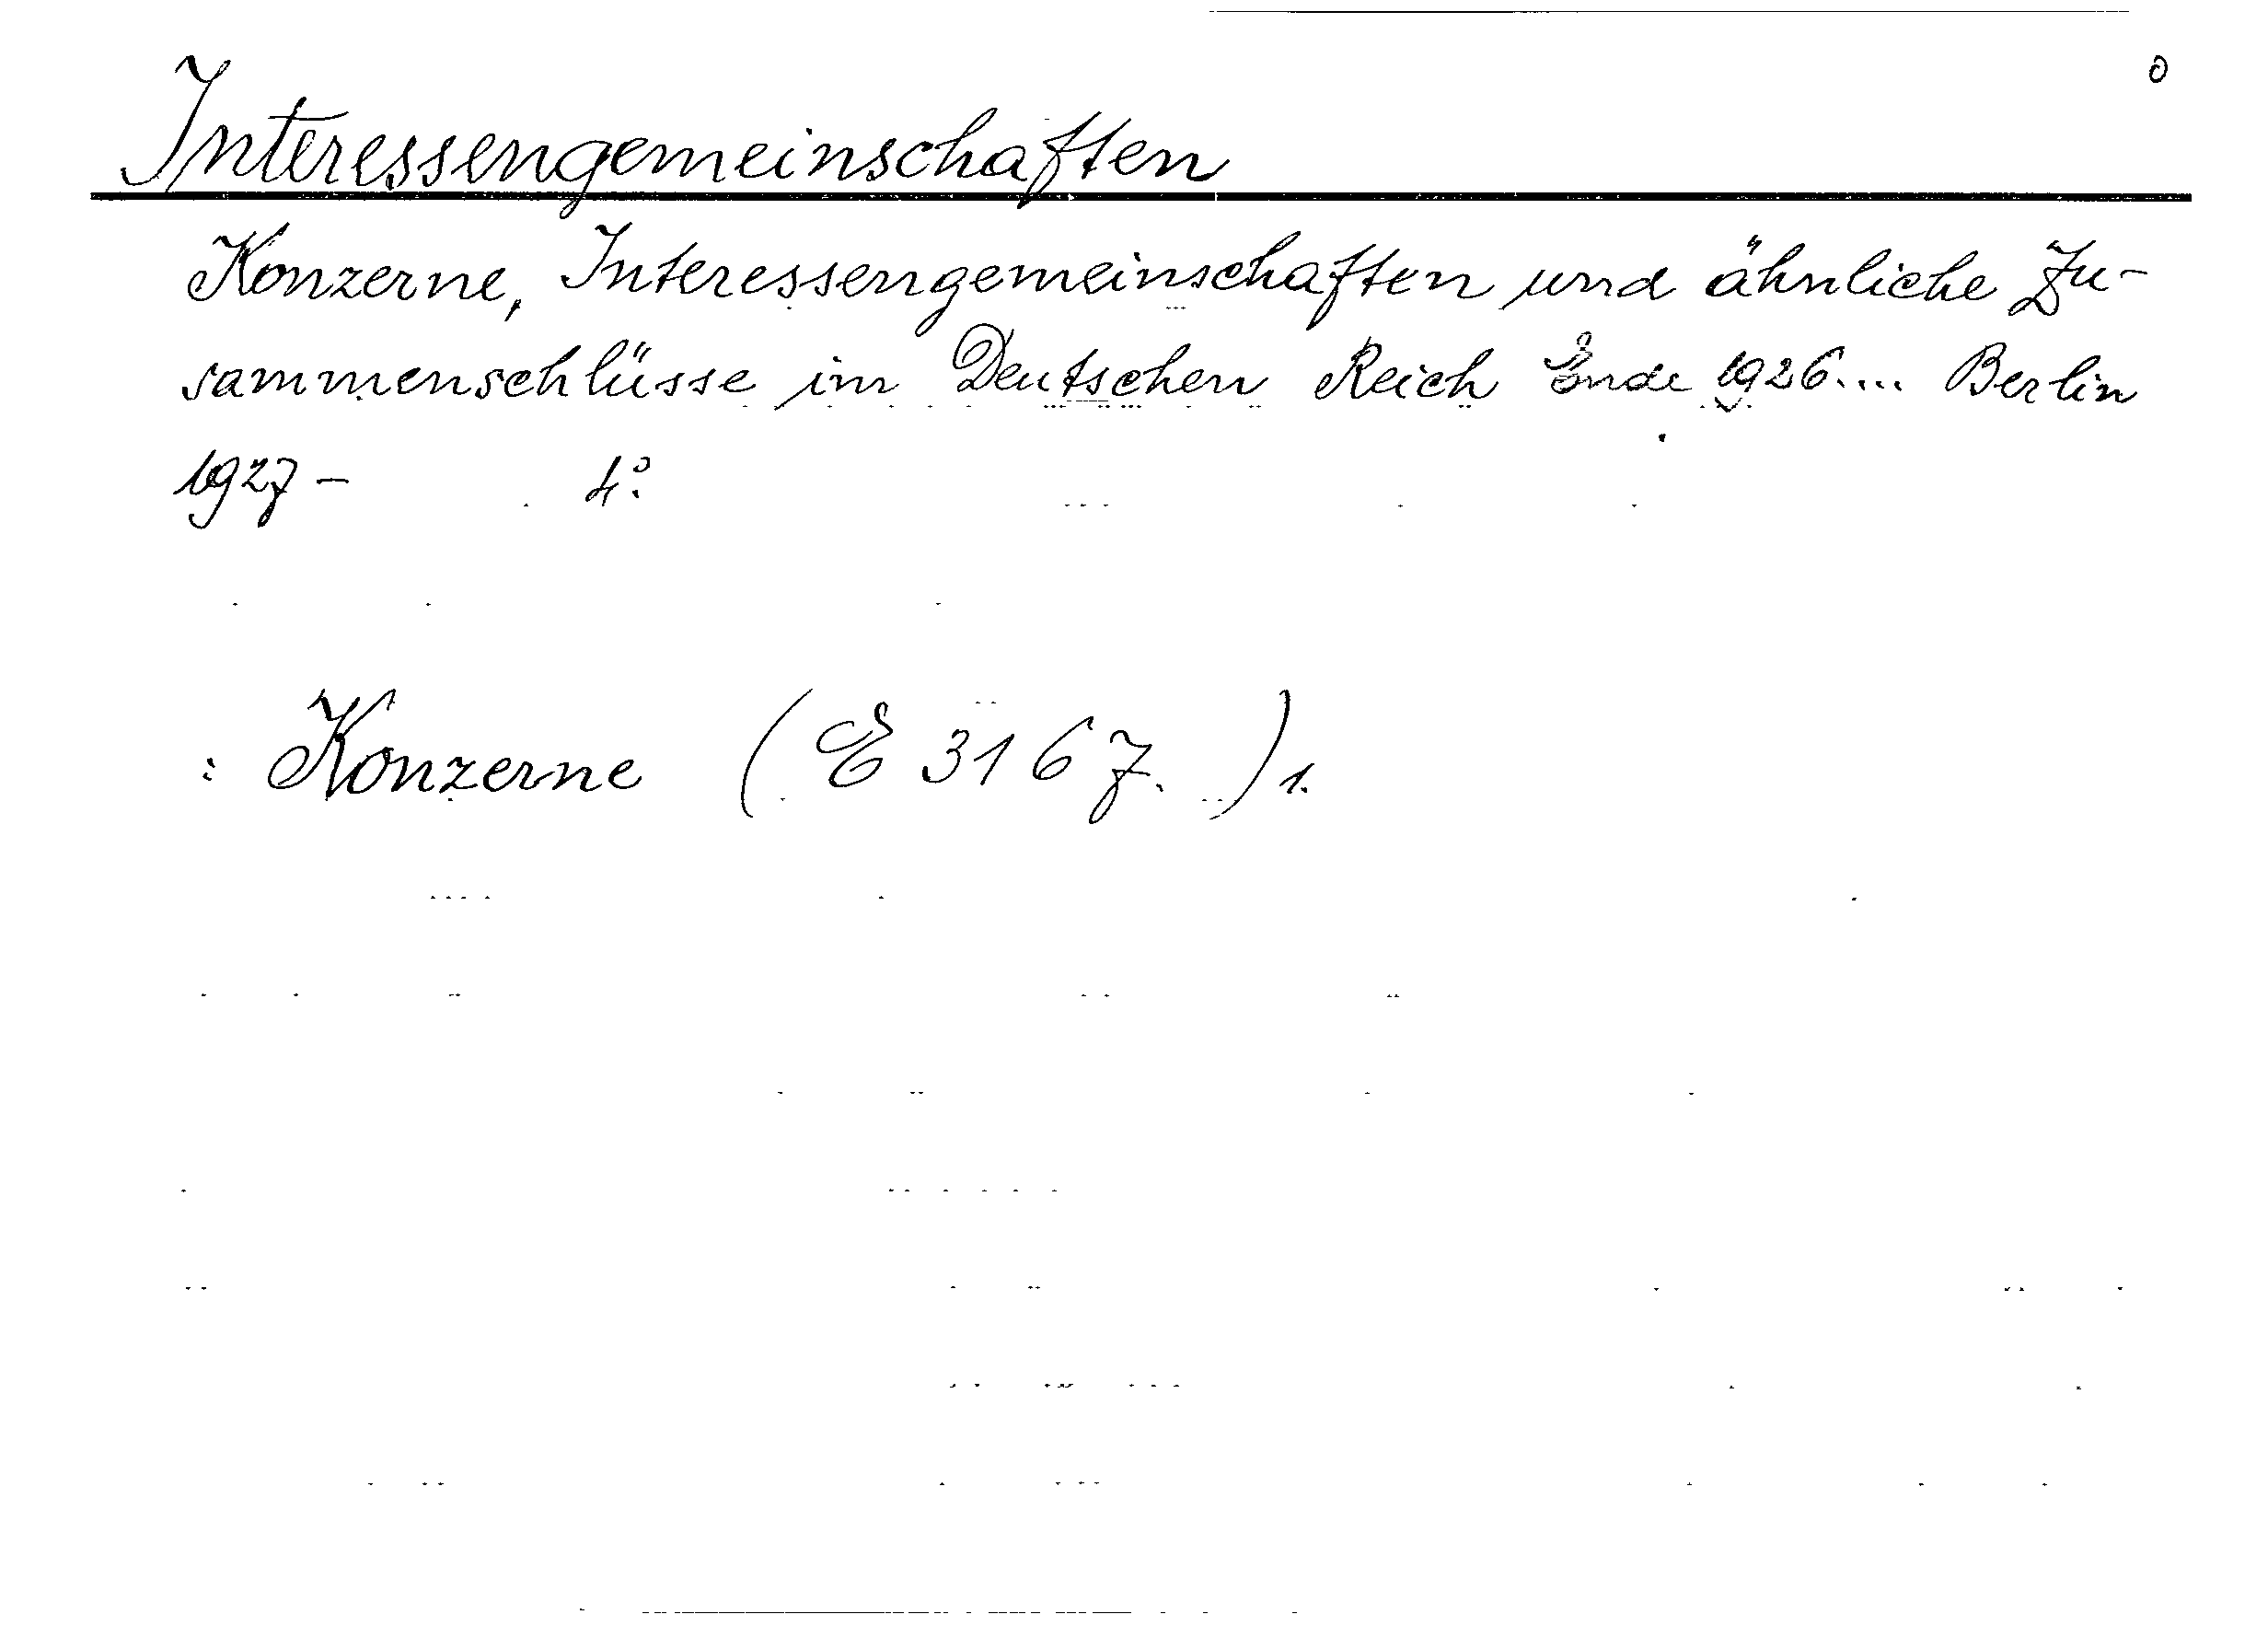 o
Interessengemeinschaften
Konzerne, Interessengemeinschaften und ähnliche Zu-
sammenschlüsse im Deutschen Reich Ende 1926.... Berlin
1927 - 4°.
: Konzerne (E 3167. ) 1.